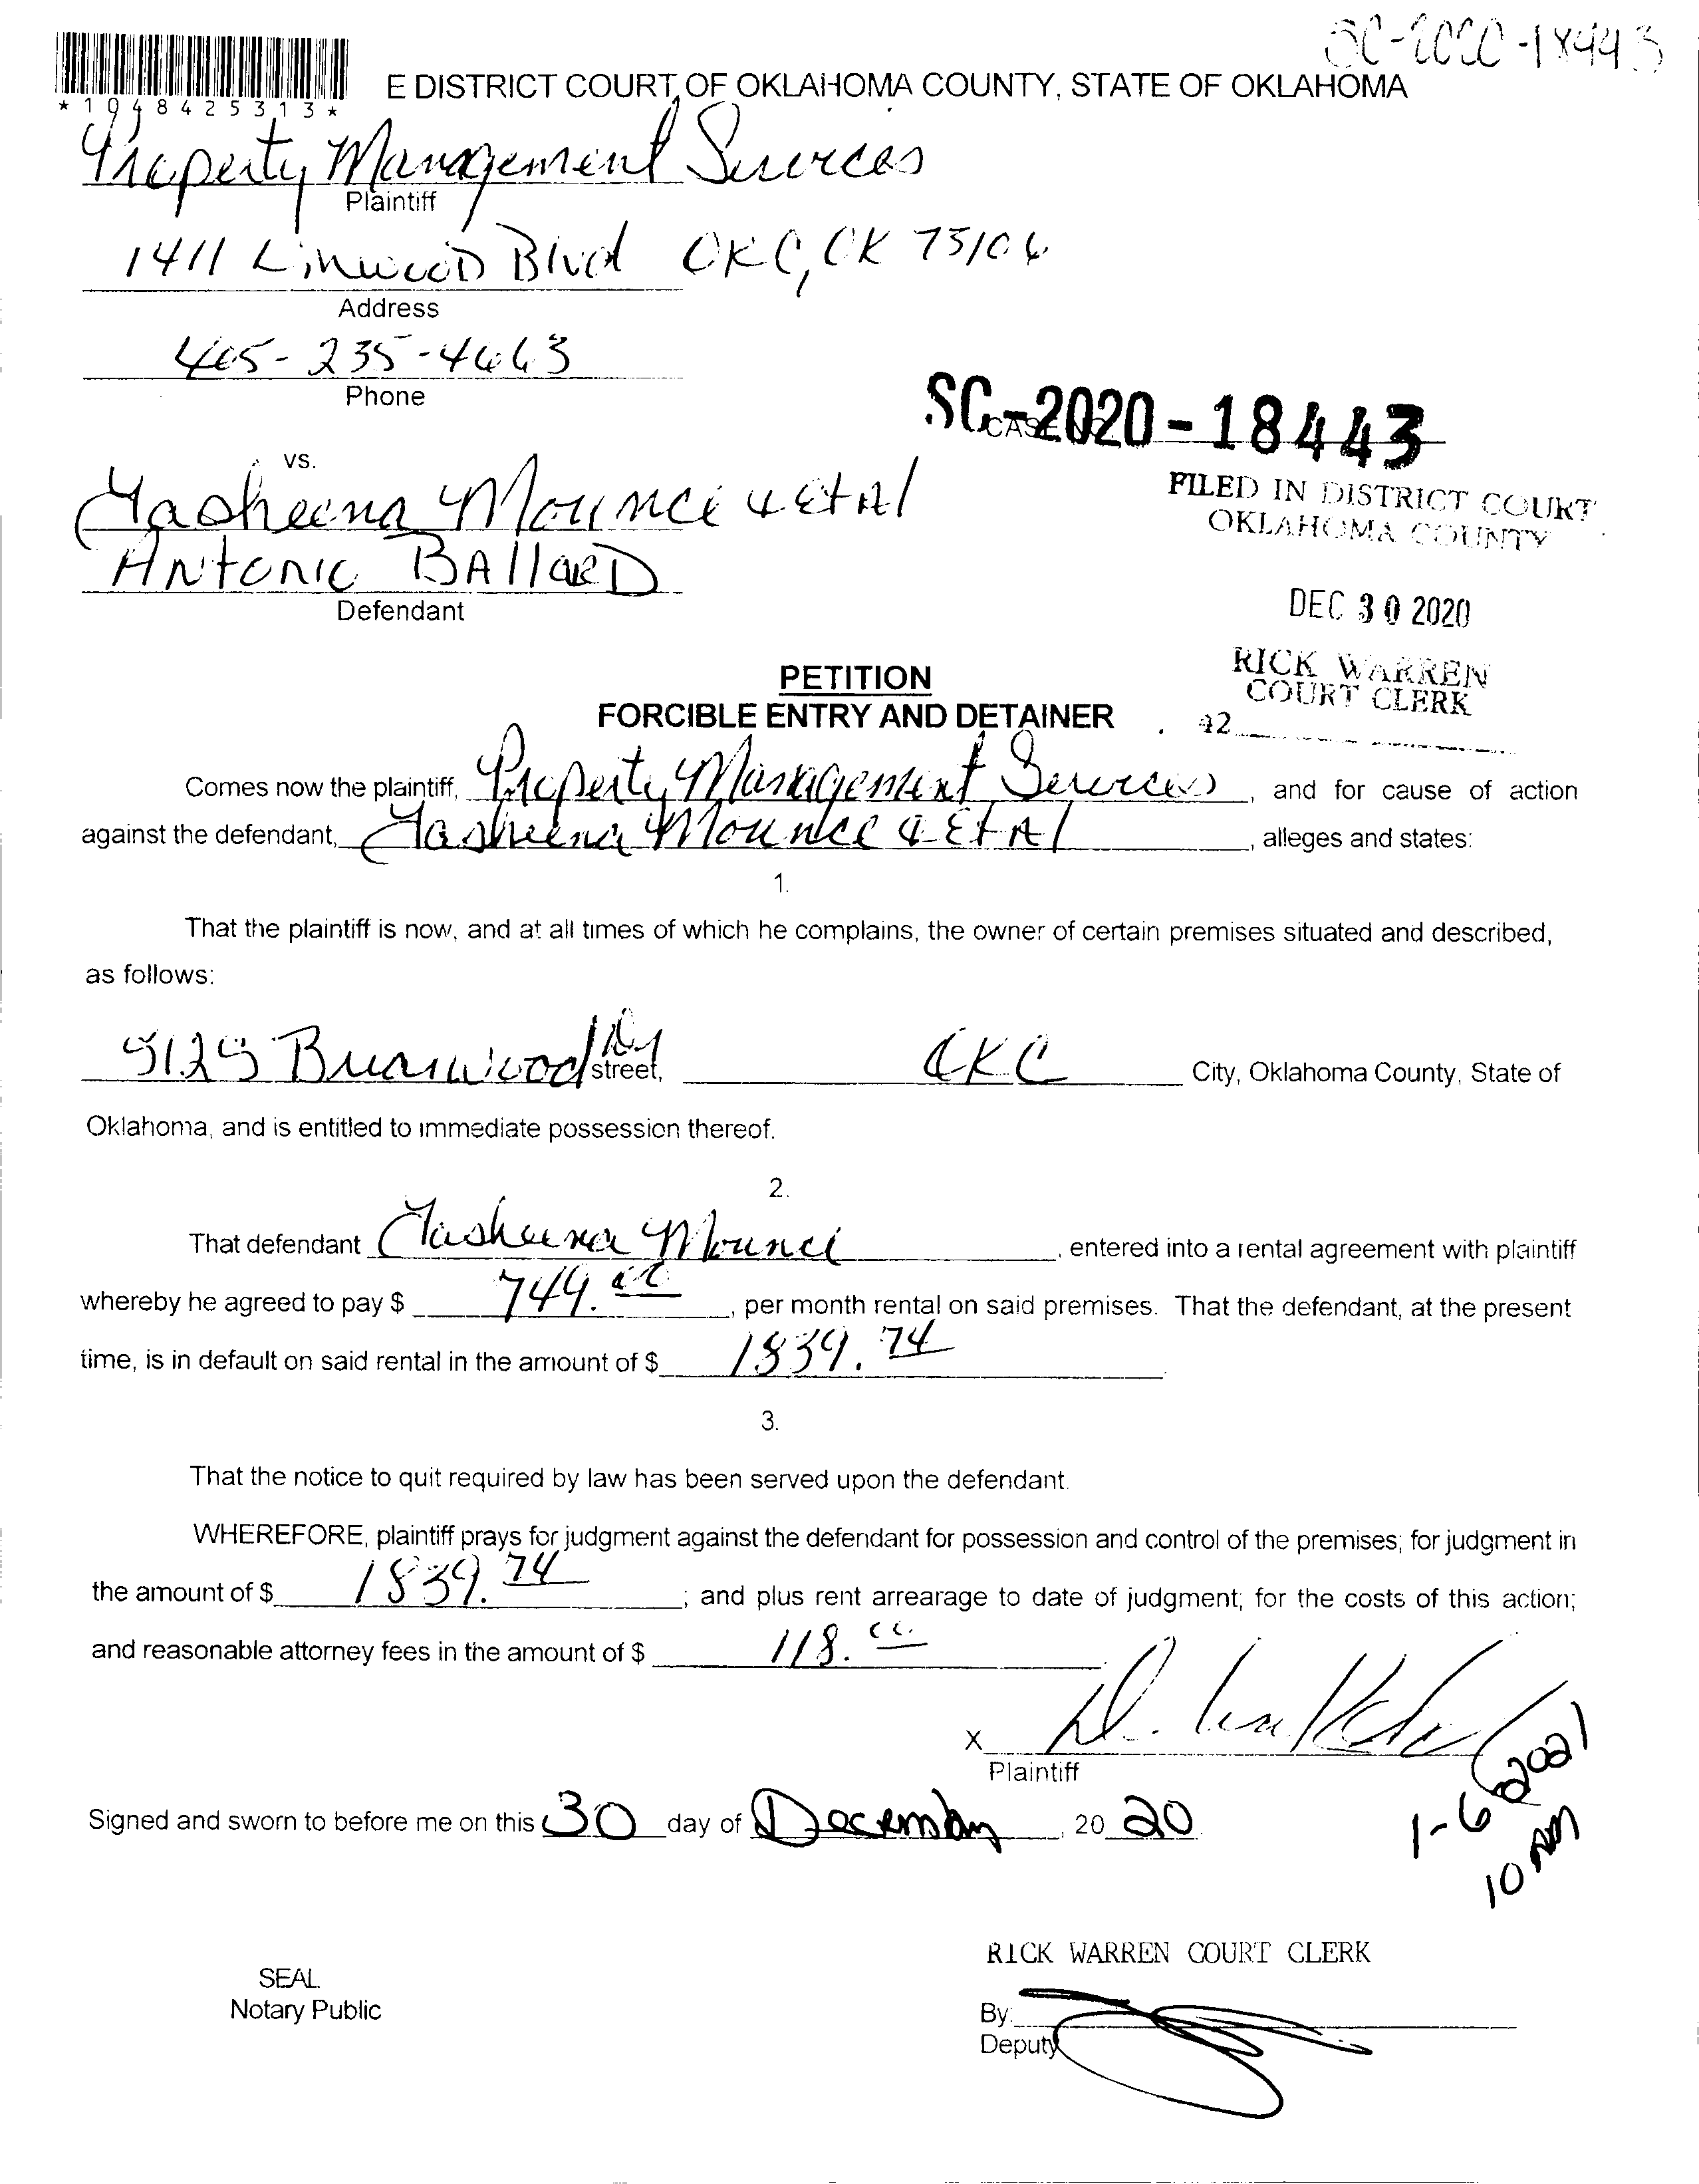 SC-2020-18443
*1048425313*
E DISTRICT COURT OF OKLAHOMA COUNTY, STATE OF OKLAHOMA
Property Management Services
Plaintiff
1411 Linwood Blvd OKC, OK 73106
Address
405-235-4663
Phone
SC-2020-18443
CASE
vs.
FILED IN DISTRICT COURT
OKLAHOMA COUNTY
Tasheena Mounce & Et Al
Antonio BAllARD
Defendant
DEC 30 2020
RICK WARREN
COURT CLERK
42
PETITION
FORCIBLE ENTRY AND DETAINER
Comes now the plaintiff, Property Management Services, and for cause of action
against the defendant, Tasheena Mounce & Et Al, alleges and states:
1.
That the plaintiff is now, and at all times of which he complains, the owner of certain premises situated and described,
as follows:
street, OKC City, Oklahoma County, State of
Oklahoma, and is entitled to immediate possession thereof.
2.
That defendant Tasheena Mounce, entered into a rental agreement with plaintiff
whereby he agreed to pay $ 749.00, per month rental on said premises. That the defendant, at the present
time, is in default on said rental in the amount of $ 1839.74
3.
That the notice to quit required by law has been served upon the defendant.
WHEREFORE, plaintiff prays for judgment against the defendant for possession and control of the premises; for judgment in
the amount of $ 1839.74; and plus rent arrearage to date of judgment; for the costs of this action;
and reasonable attorney fees in the amount of $ 118.00
X
Plaintiff
Signed and sworn to before me on this 30 day of December, 20 20
1-6 2021
10 AM
RICK WARREN COURT CLERK
SEAL
Notary Public
By:
Deputy